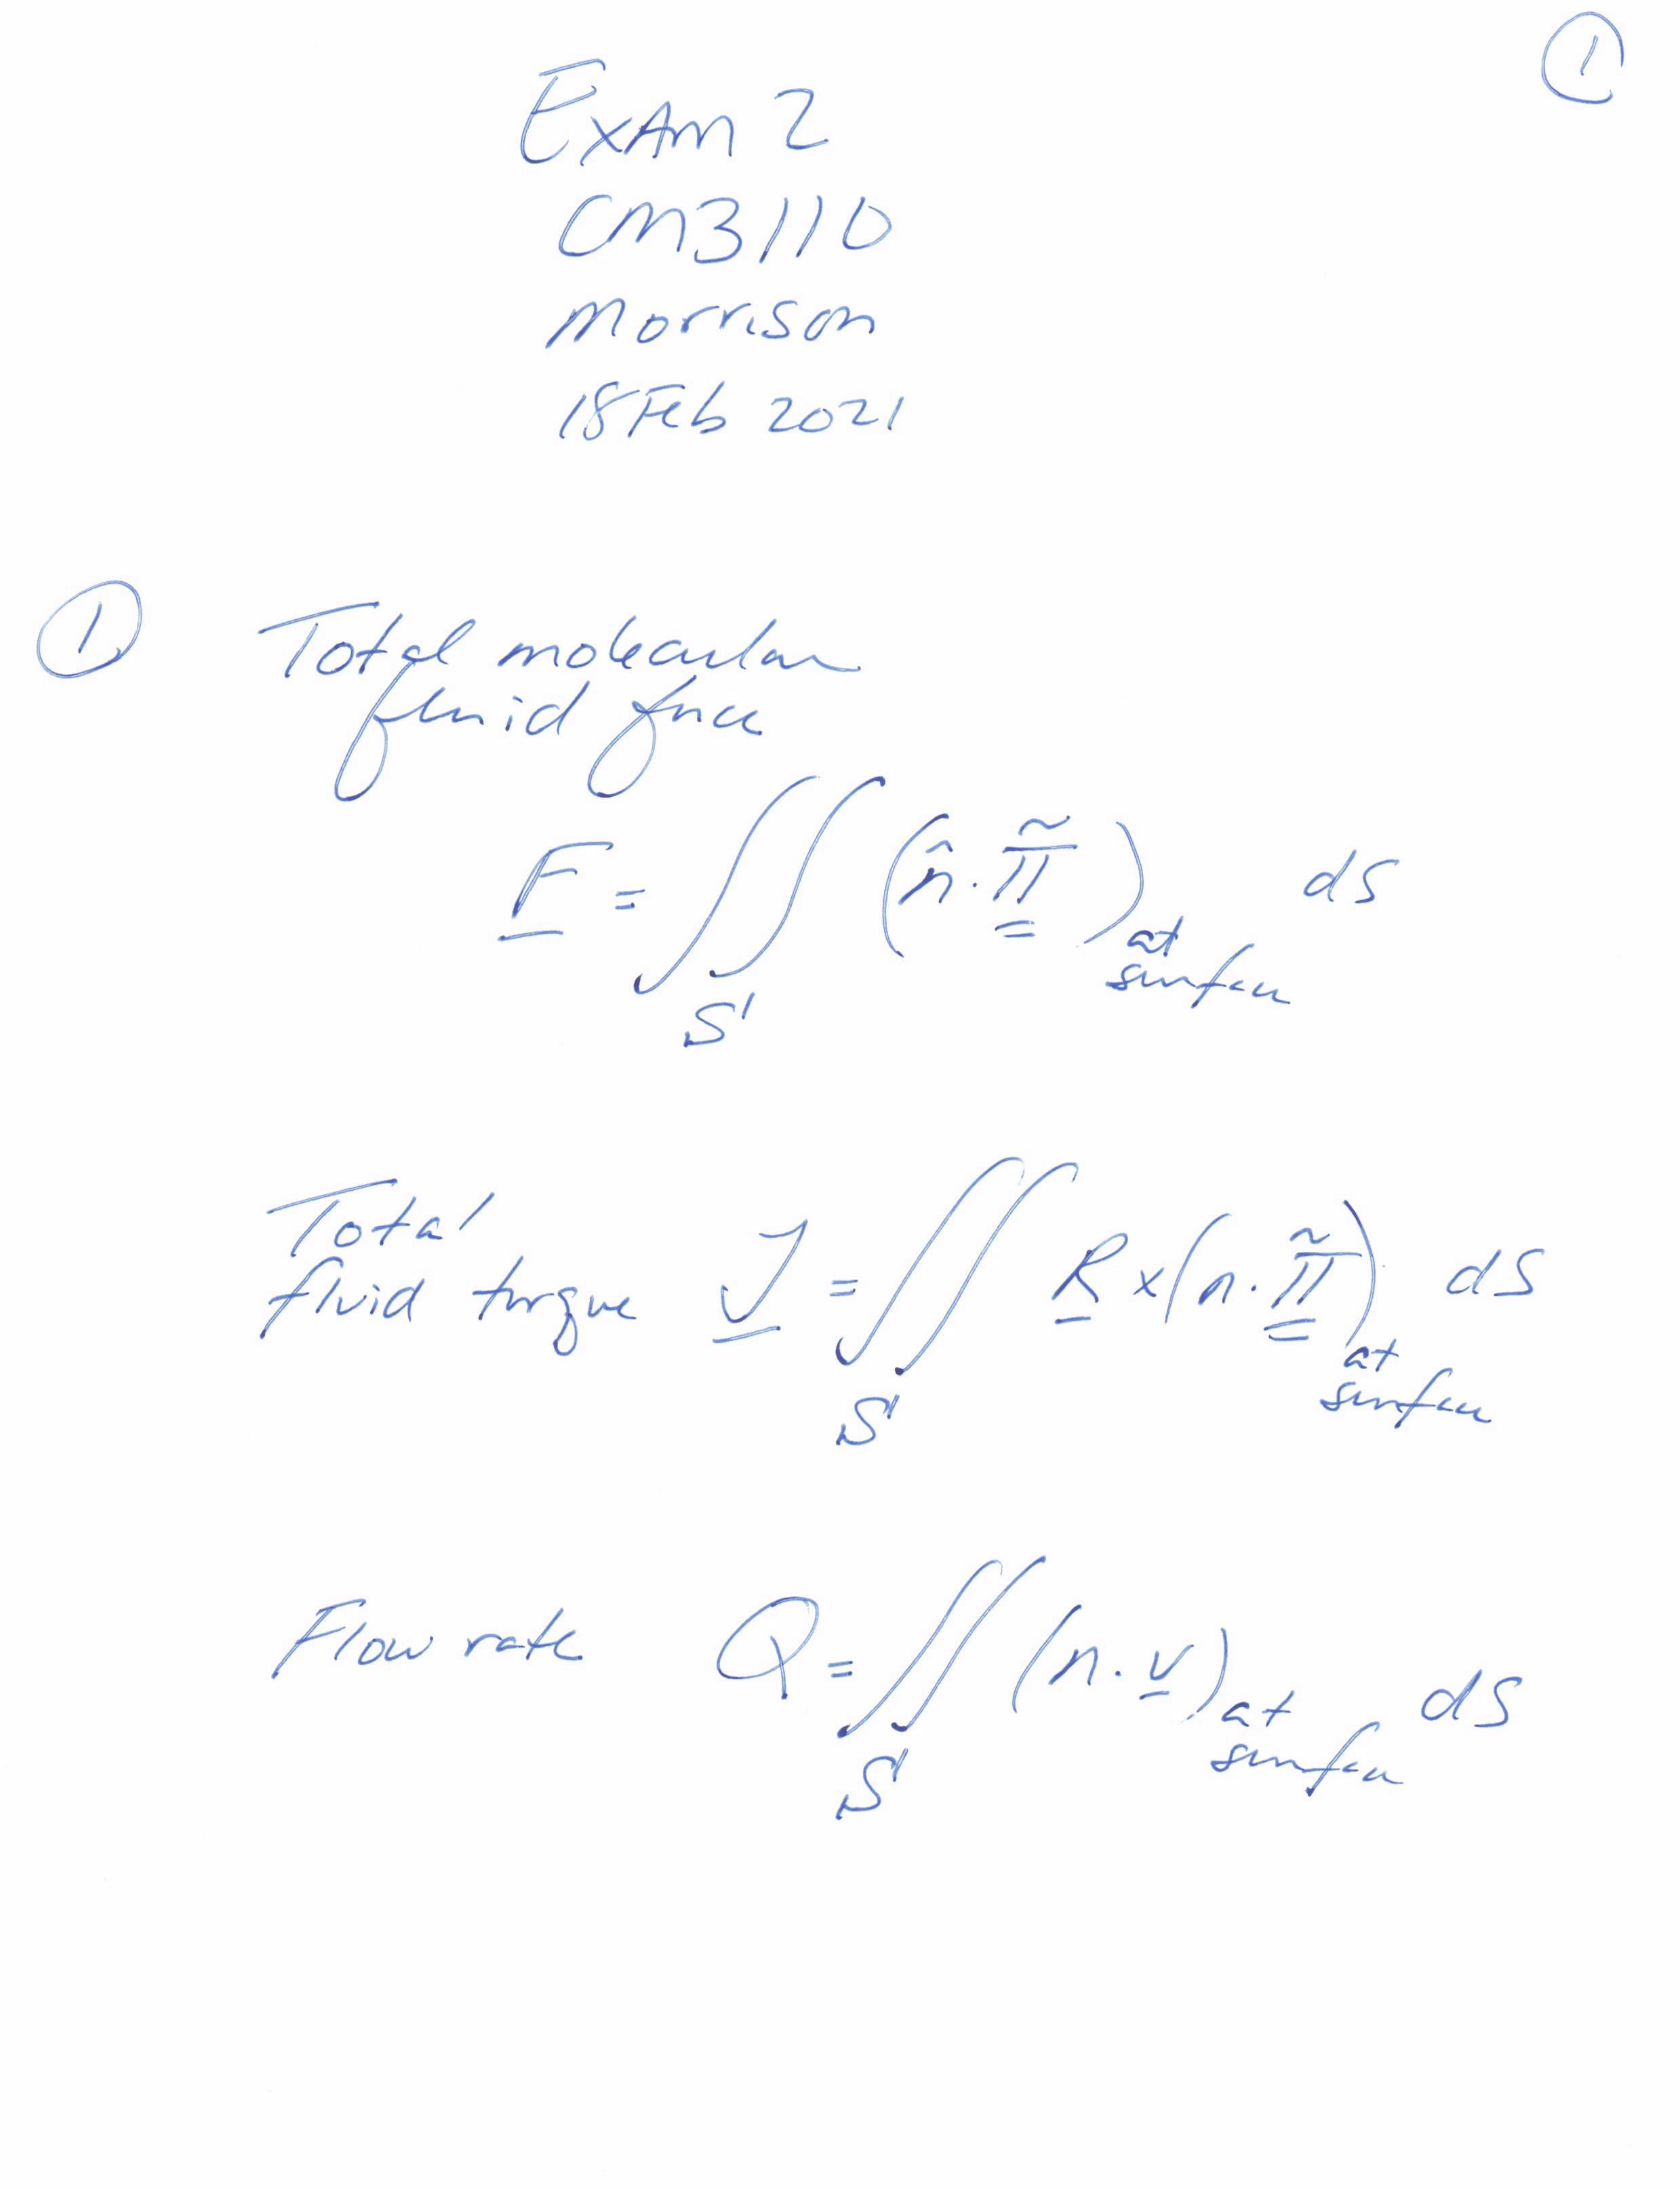 ①
Exam 2
CM3110
Morrison
18 Feb 2021
① Total molecular
fluid force
F̲ = ∬_S (n̂ · Π̳̃)_at surface dS
Total
fluid torque 𝒯̲ = ∬_S R̲ × (n · Π̳̃)_at surface dS
Flow rate Q = ∬_S (n · v̲)_at surface dS